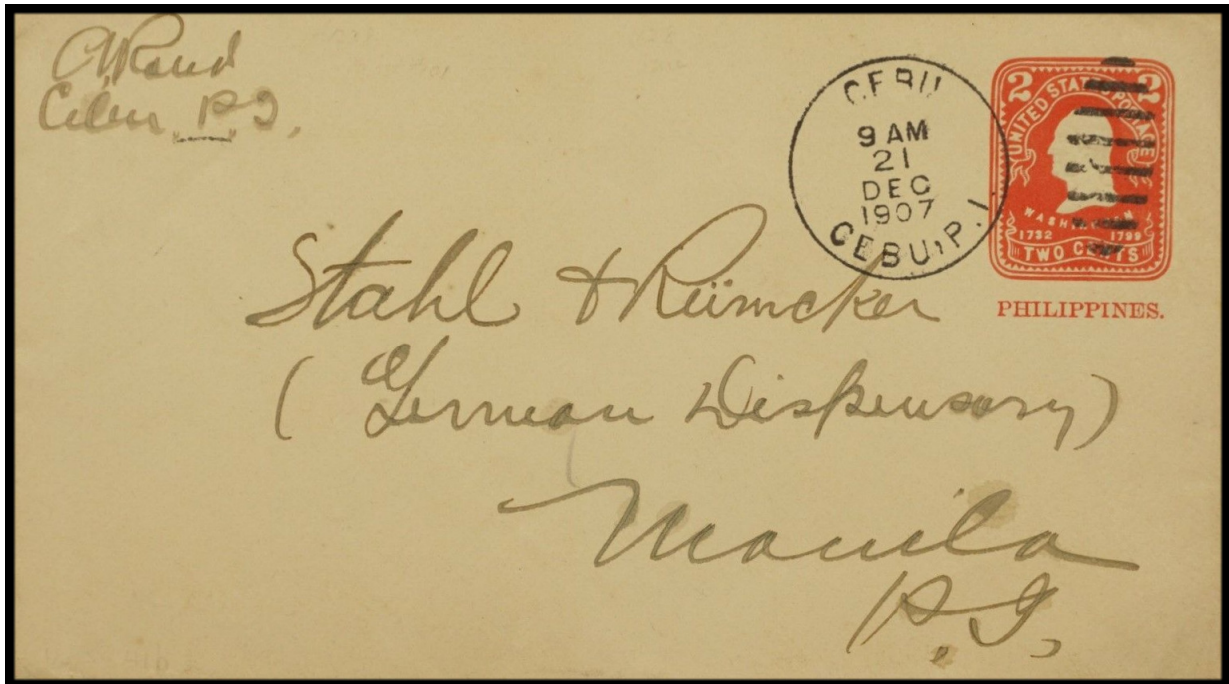 C Rand
Cebu P.I.
CEBU
9 AM
21
DEC
1907
CEBU, P.I.
2 2
UNITED STATES POSTAGE
WASHINGTON
1732 1799
TWO CENTS
PHILIPPINES.
Stahl & Rümcker
(German Dispensary)
Manila
P.I.